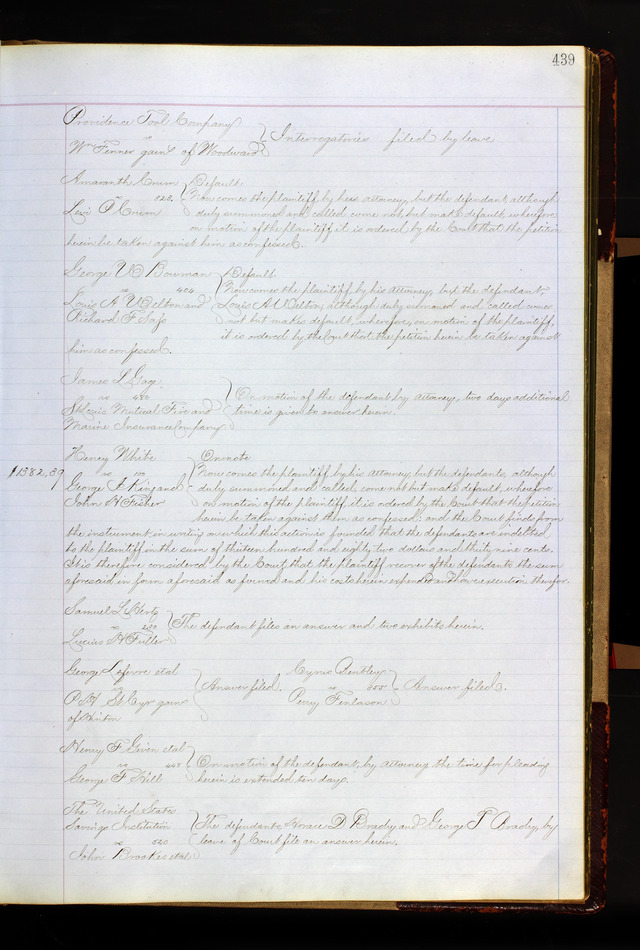 439
Providence Tool Company
vs } Interrogatories filed by leave
Wm Fenner garn of Woodward
Amaranth Crum } Default
vs 523. Now comes the plaintiff by her attorney, but the defendant although
Levi P Crum duly summoned and called come not but makes default, wherefore
on motion of the plaintiff it is ordered by the Court that the petition
herein be taken against him as confessed.
George W Bowman } Default
vs 404 Now comes the plaintiff by his attorney, but the defendant,
Louis A Welton and Louis A Welton, although duly summoned and called comes
Richard F not but makes default, wherefore, on motion of the plaintiff,
it is ordered by the Court that the petition herein be taken against
him as confessed.
James L Gage
vs 486 } On motion of the defendant by attorney, two days additional
St Louis Mutual Fire and time is given to answer herein.
Marine Insurance Company
Henry White } On note
$1382,39 vs Now comes the plaintiff by his attorney but the defendants, although
George F King and duly summoned and called, come not but make default, wherefore
John H Fisher on motion of the plaintiff, it is ordered by the Court that the petition
herein be taken against them as confessed: and the Court finds from
the instrument in writing on which this action is founded that the defendants are indebted
to the plaintiff in the sum of thirteen hundred and eighty two dollars and thirty nine cents.
It is therefore considered by the Court that the plaintiff recover of the defendants the sum
aforesaid in form aforesaid as found and his costs herein expended and have execution therefor.
Samuel L
vs } The defendant files an answer and two exhibits herein.
Lucius H Fuller
George Lefevre etal
vs } Answer filed.
P M St Cyr garn
of Hinton
Cyrus Bentley
vs } Answer filed.
Perry Finlason
Henry F Given etal
vs 443 } On motion of the defendant, by attorney the time for pleading
George F Hill herein is extended ten days.
The United States
Savings Institution } The defendants Horace D Brady and George T Brady, by
vs 520 leave of Court file an answer herein.
John Brookes etal